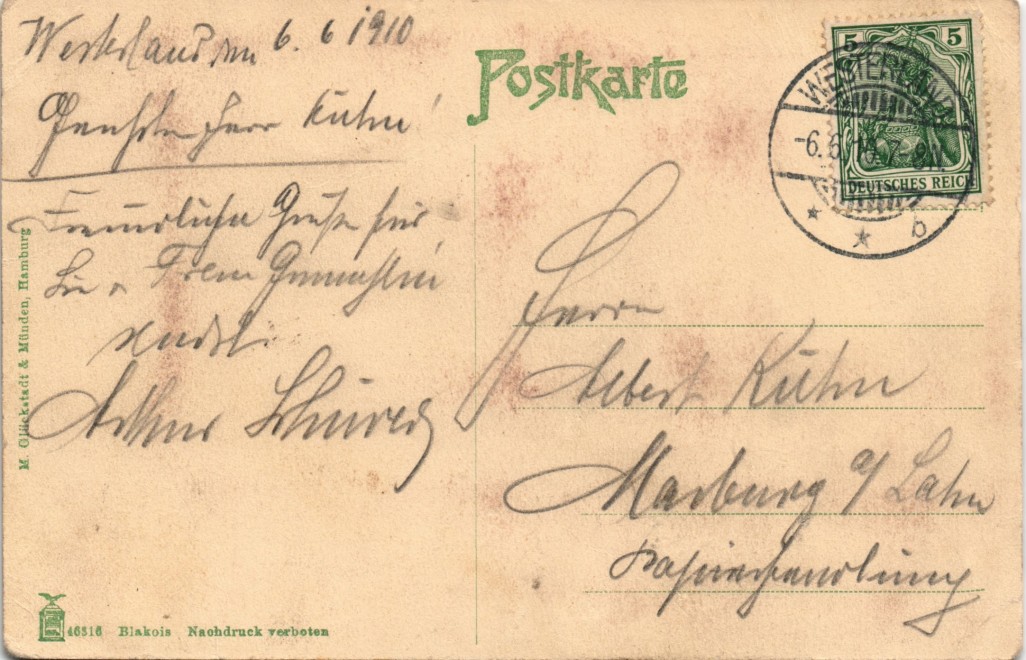 Westerland, den 6. 6 1910
Geehrter Herr Kühn!
Freundliche Grüße für
Sie u. Frau Gemahlin
sendet
Arthur
M. Glückstadt & Münden, Hamburg
46516 Blakois Nachdruck verboten
Postkarte
5 5
DEUTSCHES REICH
WESTERLAND
-6.6.10.7-8N.
* * b
Herrn
Albert Kühn
Marburg a/ Lahn
Papierhandlung